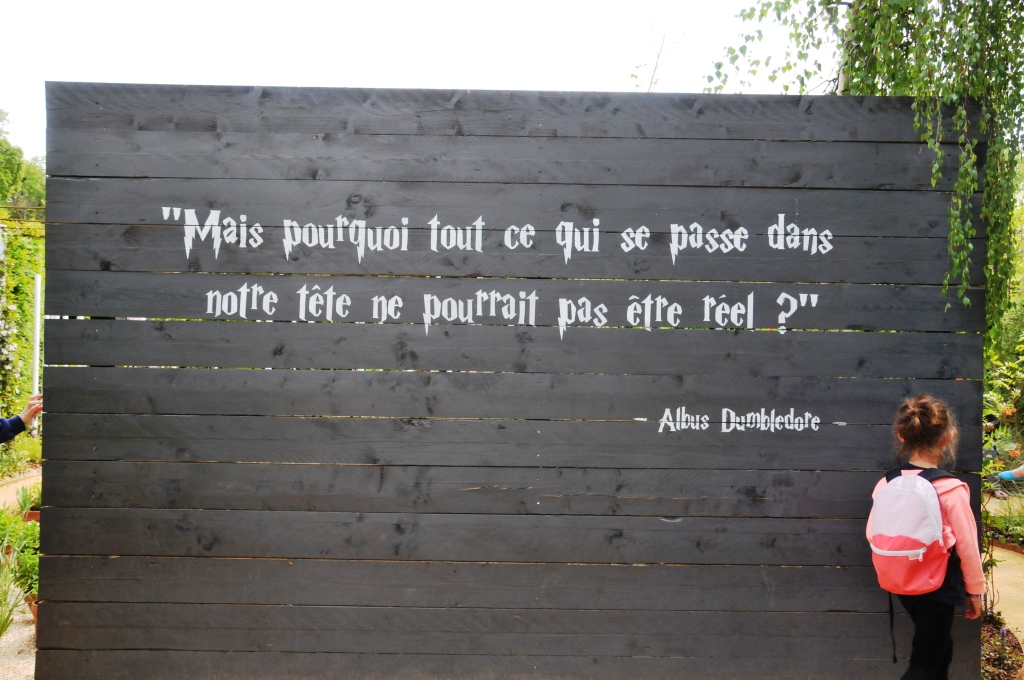 "Mais pourquoi tout ce qui se passe dans
notre tête ne pourrait pas être réel ?"
- Albus Dumbledore -